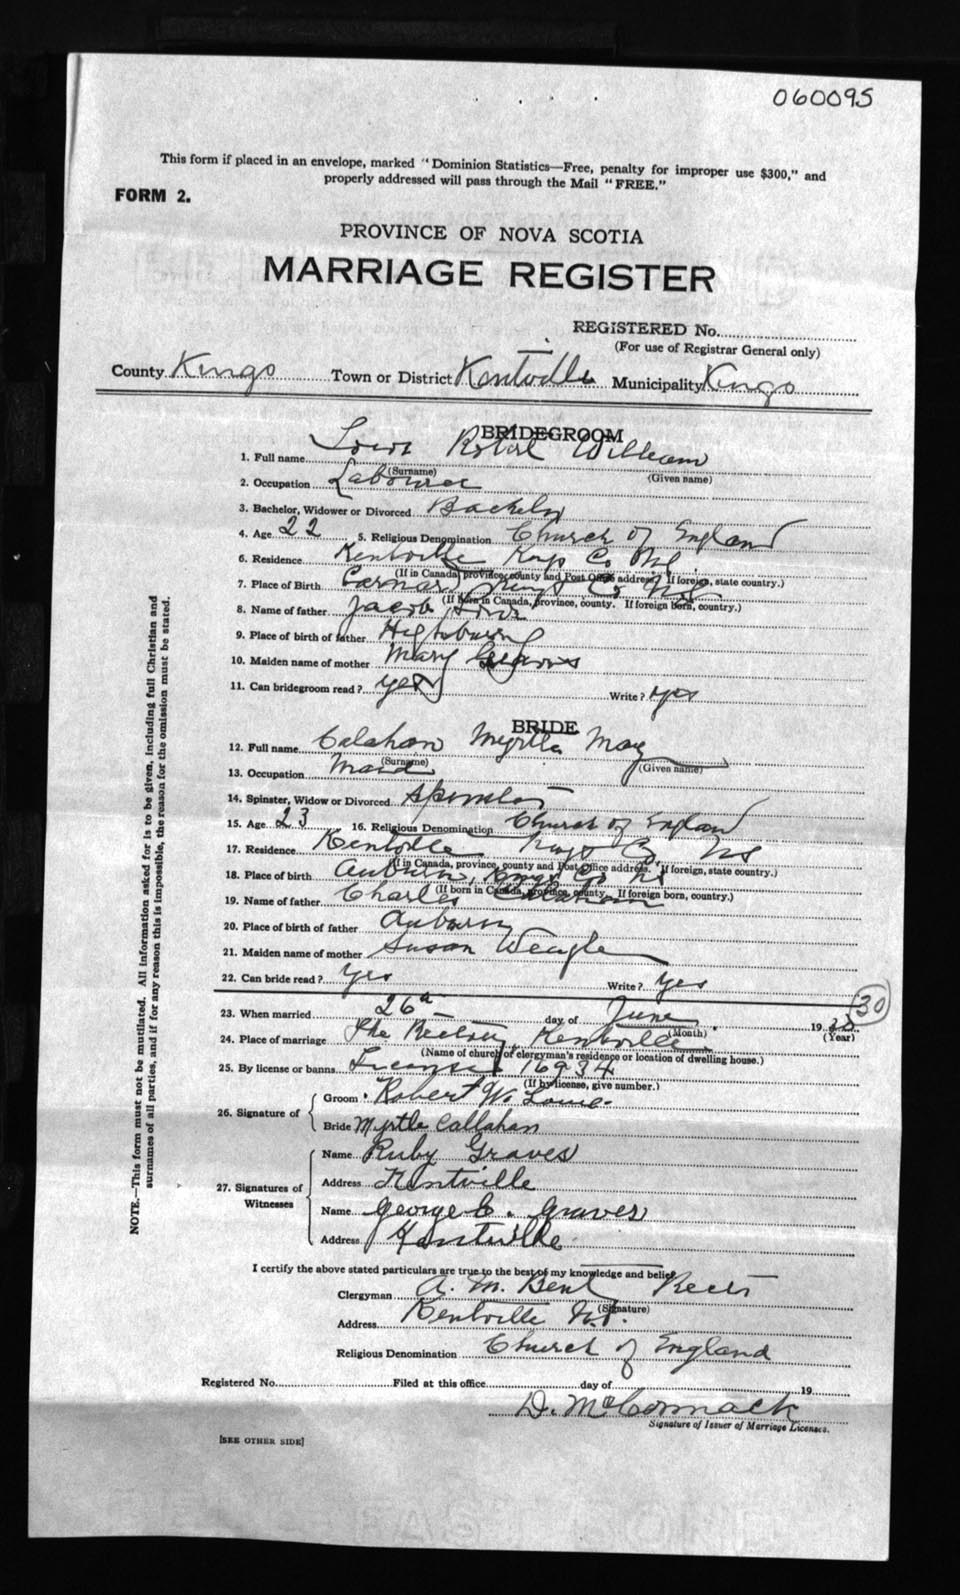 060095
This form if placed in an envelope, marked "Dominion Statistics—Free, penalty for improper use $300," and
properly addressed will pass through the Mail "FREE."
FORM 2.
PROVINCE OF NOVA SCOTIA
MARRIAGE REGISTER
REGISTERED No.
(For use of Registrar General only)
County Kings Town or District Kentville Municipality Kings
BRIDEGROOM
1. Full name Robert William
(Surname) (Given name)
2. Occupation Labourer
3. Bachelor, Widower or Divorced Bachelor
4. Age 22 5. Religious Denomination Church of England
6. Residence Kentville Kings Co NS
(If in Canada, province, county and Post Office address. If foreign, state country.)
7. Place of Birth Kings Co NS
(If born in Canada, province, county. If foreign born, country.)
8. Name of father Jacob
9. Place of birth of father Highbury
10. Maiden name of mother Mary
11. Can bridegroom read? yes Write? yes
BRIDE
12. Full name Calahan Myrtle May
(Surname) (Given name)
13. Occupation Maid
14. Spinster, Widow or Divorced Spinster
15. Age 23 16. Religious Denomination Church of England
17. Residence Kentville Kings Co NS
(If in Canada, province, county and Post Office address. If foreign, state country.)
18. Place of birth Auburn, Kings Co NS
(If born in Canada, province, county. If foreign born, country.)
19. Name of father Charles Calahan
20. Place of birth of father Auburn
21. Maiden name of mother Susan Weagle
22. Can bride read? Yes Write? Yes
23. When married 26th day of June 19
30
(Month) (Year)
24. Place of marriage The Rectory, Kentville
(Name of church or clergyman's residence or location of dwelling house.)
25. By license or banns License 16934
(If by license, give number.)
26. Signature of
Groom Robert W. Lowe
Bride Myrtle Callahan
27. Signatures of Witnesses
Name Ruby Graves
Address Kentville
Name George C. Graves
Address Kentville
I certify the above stated particulars are true to the best of my knowledge and belief.
Clergyman A. M. Bent Rector
(Signature)
Address Kentville N.S.
Religious Denomination Church of England
Registered No. Filed at this office day of 19
D. McCormack
Signature of Issuer of Marriage Licenses.
[SEE OTHER SIDE]
NOTE.—This form must not be mutilated. All information asked for is to be given, including full Christian and
surnames of all parties, and if for any reason this is impossible, the reason for the omission must be stated.